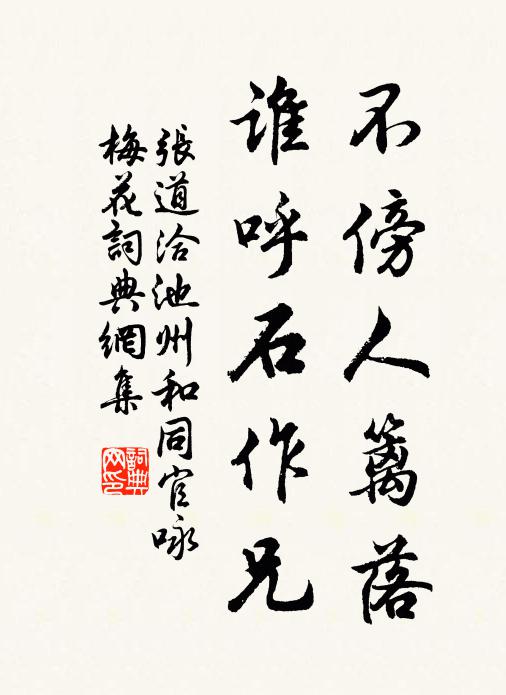 不傍人籬落
誰呼石作兄
張道洽池州和同官咏
梅花詞典網集
詞典网印